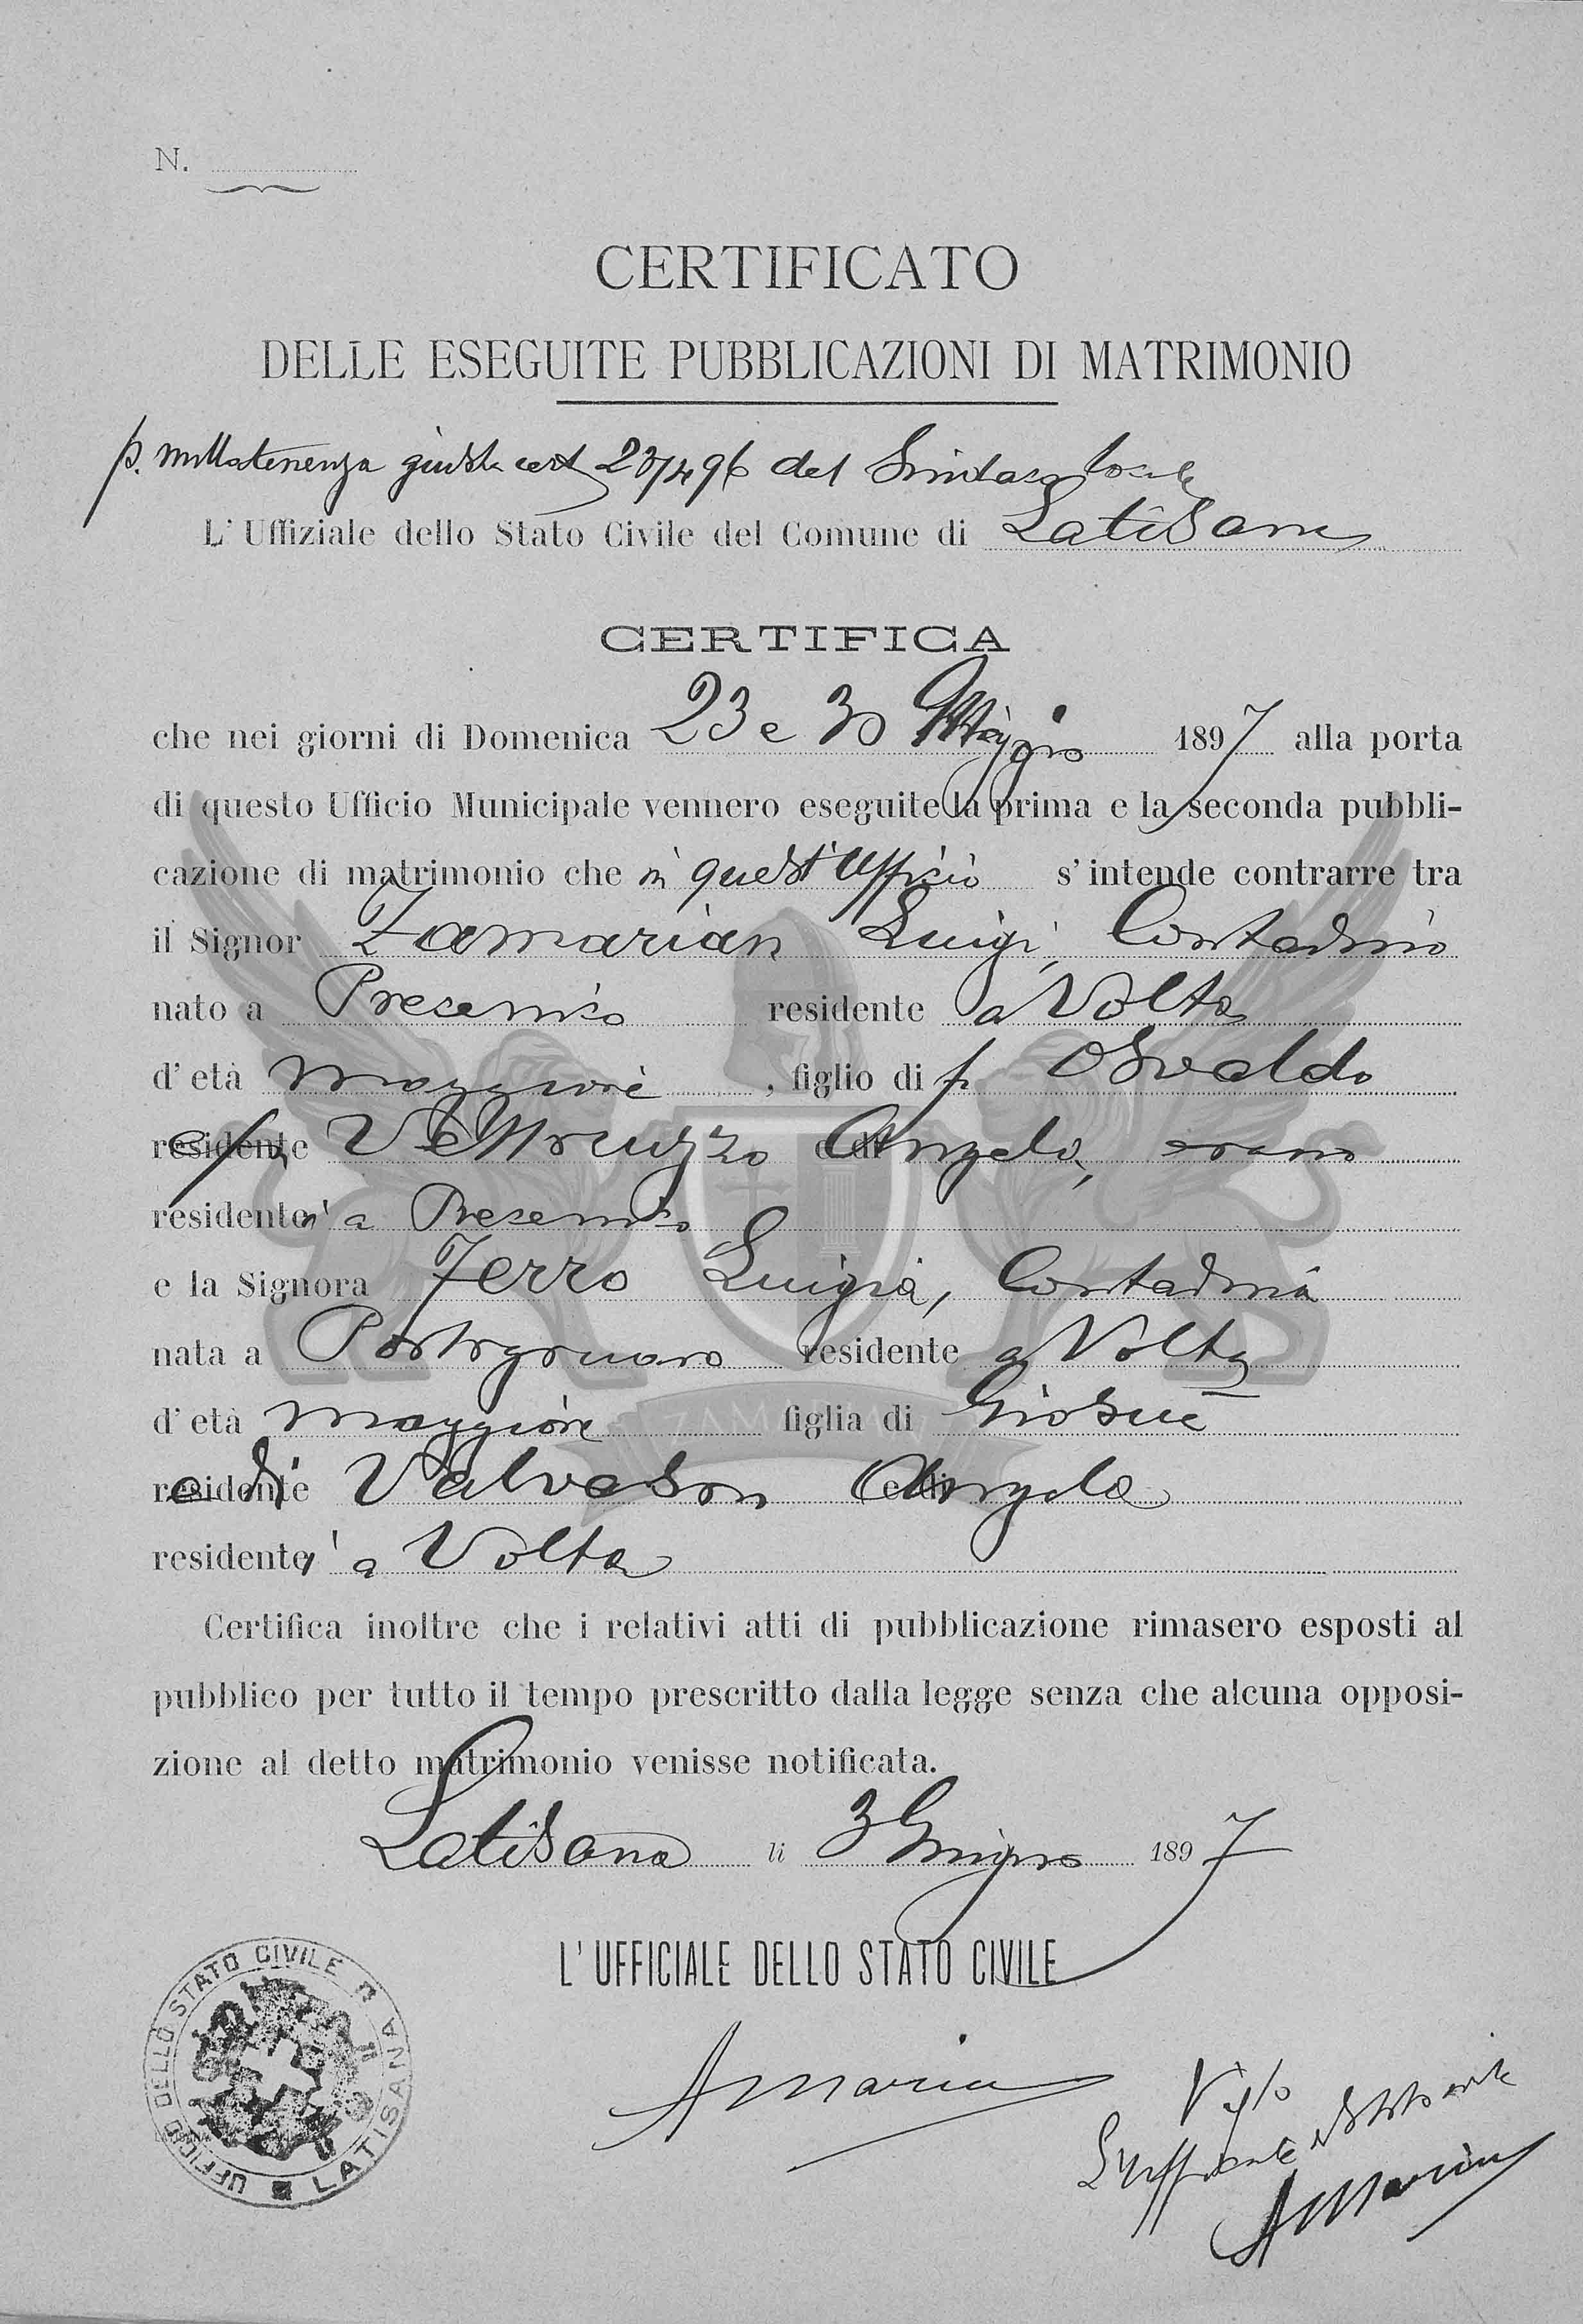 N.
CERTIFICATO
DELLE ESEGUITE PUBBLICAZIONI DI MATRIMONIO
p. nullatenenza giusta cert 28/4 96 del Sindaco locale
L' Uffiziale dello Stato Civile del Comune di Latisana
CERTIFICA
che nei giorni di Domenica 23 e 30 Maggio 1897 alla porta
di questo Ufficio Municipale vennero eseguite la prima e la seconda pubbli-
cazione di matrimonio che in quest'Ufficio s' intende contrarre tra
il Signor Zamarian Luigi, Contadino
nato a Precenico residente a Volta
d' età maggiore, figlio di fu Osvaldo
residente e fu Vettruzzo e di Angela, erano
residenti a Precenico
e la Signora Zerro Luigia, Contadina
nata a Portogruaro residente a Volta
d' età maggiore figlia di Giosuè
residente e di Valvason e di Angela
residenti a Volta
Certifica inoltre che i relativi atti di pubblicazione rimasero esposti al
pubblico per tutto il tempo prescritto dalla legge senza che alcuna opposi-
zione al detto matrimonio venisse notificata.
Latisana li 3 Giugno 1897
L' UFFICIALE DELLO STATO CIVILE
UFFICIO DELLO STATO CIVILE DI LATISANA
AMarin
Visto
L'uffiziale di Stato civile
AMarin